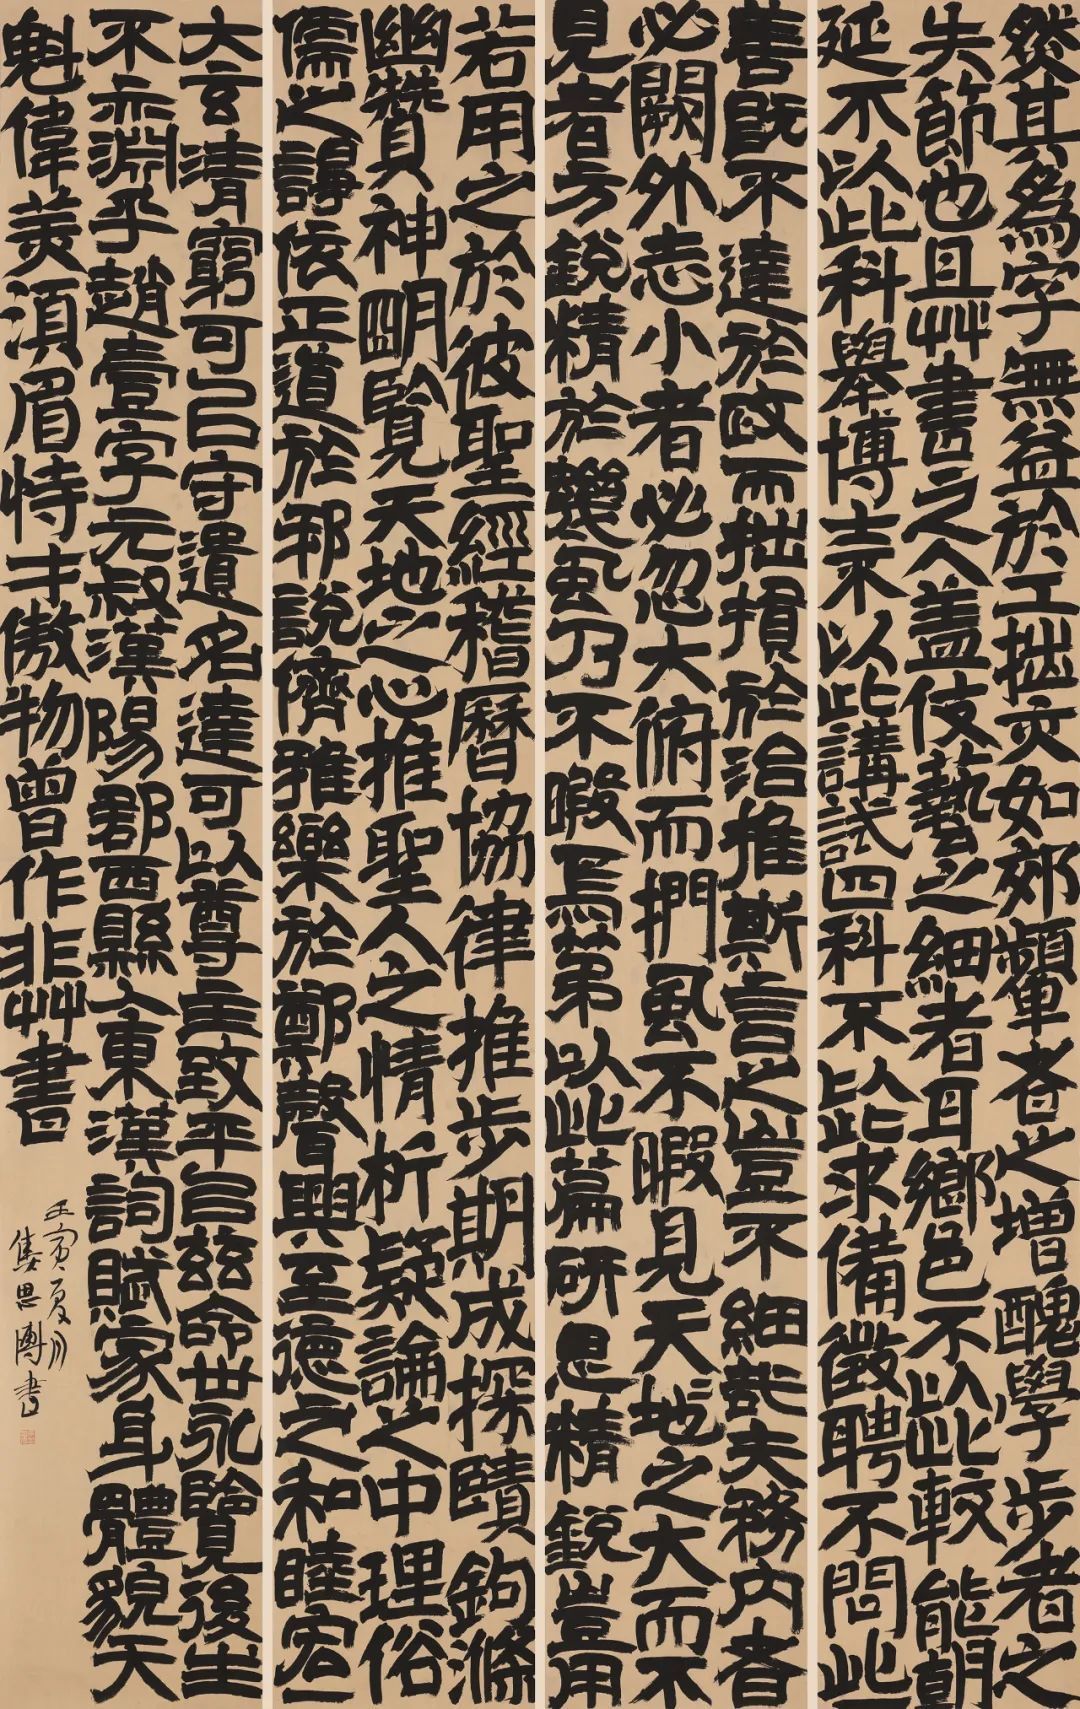 然其為字無益於工拙亦如郊顰者之增醜學步者之
失節也且艸書之人蓋伎藝之細者耳鄉邑不以此較能朝
延不以此科舉博士不以此講試四科不以此求備徵聘不問此
善既不達於政而拙損於治推斯言之豈不細哉夫務內者
必闕外志小者必忽大俯而捫風不暇見天地之大而不
見者方銳精於蟣虱乃不暇焉第以此篇研思精銳豈用
若用之於彼聖經稽曆協律推步期成探賾鉤滌
幽贊神明覽天地之心推聖人之情析疑論之中理俗
儒之諍依正道於邪說儕雅樂於鄭聲興至德之和睦宏
大玄清窮可以守遺名達可以尊主致平以茲命世永覽後生
不亦淵乎趙壹字元叔漢陽郡西縣人東漢詞賦家身體貌天
魁偉美須眉恃才傲物曾作非艸書
壬寅夏月
思博書